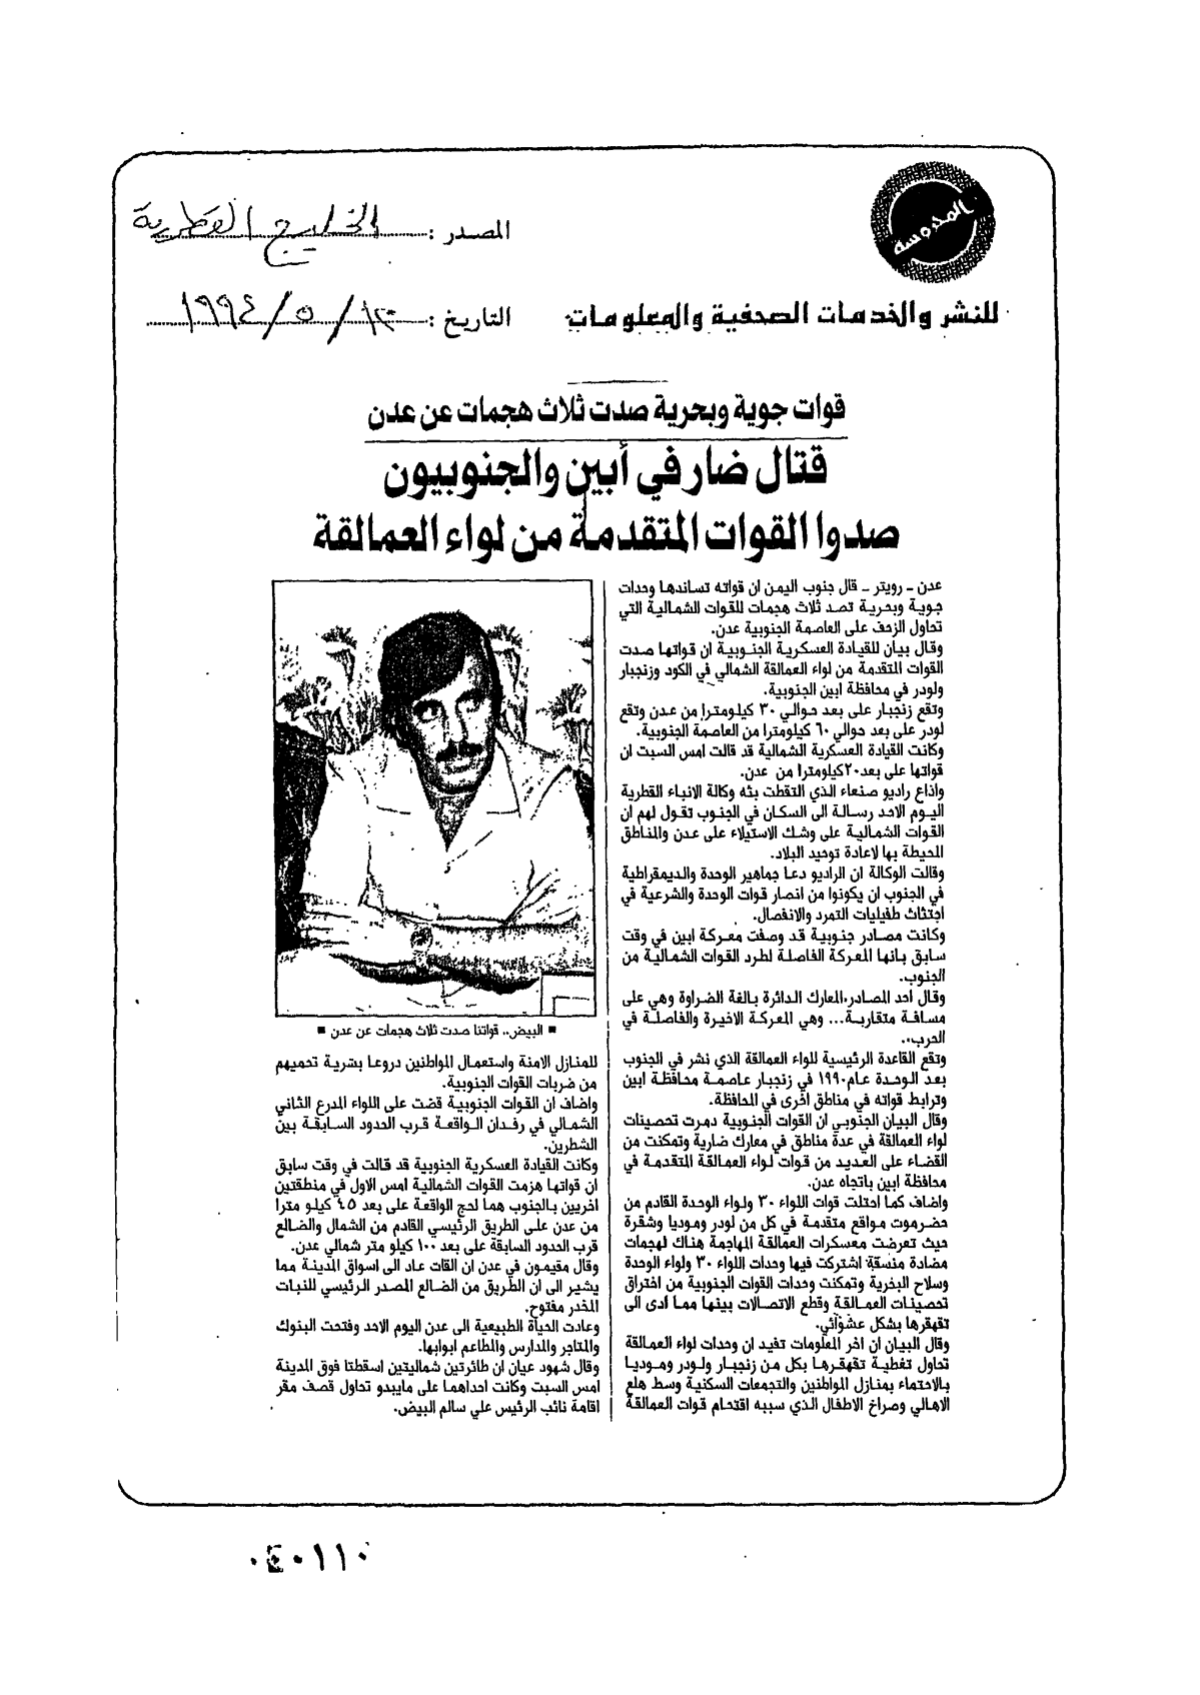 المحروسة
للنشر والخدمات الصحفية والمعلومات
المصدر : الخليج القطرية
التاريخ : / ٥ / ١٩٩٤
قوات جوية وبحرية صدت ثلاث هجمات عن عدن
قتال ضار في أبين والجنوبيون
صدوا القوات المتقدمة من لواء العمالقة
عدن - رويتر - قال جنوب اليمن ان قواته تساندها وحدات
جوية وبحرية تصد ثلاث هجمات للقوات الشمالية التي
تحاول الزحف على العاصمة الجنوبية عدن.
وقال بيان للقيادة العسكرية الجنوبية ان قواتها صدت
القوات المتقدمة من لواء العمالقة الشمالي في الكود وزنجبار
ولودر في محافظة ابين الجنوبية.
وتقع زنجبار على بعد حوالي ٣٠ كيلومترا من عدن وتقع
لودر على بعد حوالي ٦٠ كيلومترا من العاصمة الجنوبية.
وكانت القيادة العسكرية الشمالية قد قالت امس السبت ان
قواتها على بعد ٢٠ كيلومترا من عدن.
واذاع راديو صنعاء الذي التقطت بثه وكالة الانباء القطرية
اليوم الاحد رسالة الى السكان في الجنوب تقول لهم ان
القوات الشمالية على وشك الاستيلاء على عدن والمناطق
المحيطة بها لاعادة توحيد البلاد.
وقالت الوكالة ان الراديو دعا جماهير الوحدة والديمقراطية
في الجنوب ان يكونوا من انصار قوات الوحدة والشرعية في
اجتثاث طفيليات التمرد والانفصال.
وكانت مصادر جنوبية قد وصفت معركة ابين في وقت
سابق بانها المعركة الفاصلة لطرد القوات الشمالية من
الجنوب.
وقال احد المصادر،المعارك الدائرة بالغة الضراوة وهي على
مسافة متقاربة... وهي المعركة الاخيرة والفاصلة في
الحرب،.
وتقع القاعدة الرئيسية للواء العمالقة الذي نشر في الجنوب
بعد الوحدة عام ١٩٩٠ في زنجبار عاصمة محافظة ابين
وترابط قواته في مناطق اخرى في المحافظة.
وقال البيان الجنوبي ان القوات الجنوبية دمرت تحصينات
لواء العمالقة في عدة مناطق في معارك ضارية وتمكنت من
القضاء على العديد من قوات لواء العمالقة المتقدمة في
محافظة ابين باتجاه عدن.
واضاف كما احتلت قوات اللواء ٣٠ ولواء الوحدة القادم من
حضرموت مواقع متقدمة في كل من لودر وموديا وشقرة
حيث تعرضت معسكرات العمالقة المهاجمة هناك لهجمات
مضادة منسقة اشتركت فيها وحدات اللواء ٣٠ ولواء الوحدة
وسلاح البحرية وتمكنت وحدات القوات الجنوبية من اختراق
تحصينات العمالقة وقطع الاتصالات بينها مما ادى الى
تقهقرها بشكل عشوائي.
وقال البيان ان اخر المعلومات تفيد ان وحدات لواء العمالقة
تحاول تغطية تقهقرها بكل من زنجبار ولودر وموديا
بالاحتماء بمنازل المواطنين والتجمعات السكنية وسط هلع
الاهالي وصراخ الاطفال الذي سببه اقتحام قوات العمالقة
■ البيض.. قواتنا صدت ثلاث هجمات عن عدن ■
للمنازل الامنة واستعمال المواطنين دروعا بشرية تحميهم
من ضربات القوات الجنوبية.
واضاف ان القوات الجنوبية قضت على اللواء المدرع الثاني
الشمالي في ردفان الواقعة قرب الحدود السابقة بين
الشطرين.
وكانت القيادة العسكرية الجنوبية قد قالت في وقت سابق
ان قواتها هزمت القوات الشمالية امس الاول في منطقتين
اخريين بالجنوب هما لحج الواقعة على بعد ٤٥ كيلو مترا
من عدن على الطريق الرئيسي القادم من الشمال والضالع
قرب الحدود السابقة على بعد ١٠٠ كيلو متر شمالي عدن.
وقال مقيمون في عدن ان القات عاد الى اسواق المدينة مما
يشير الى ان الطريق من الضالع المصدر الرئيسي للنبات
المخدر مفتوح.
وعادت الحياة الطبيعية الى عدن اليوم الاحد وفتحت البنوك
والمتاجر والمدارس والمطاعم ابوابها.
وقال شهود عيان ان طائرتين شماليتين اسقطتا فوق المدينة
امس السبت وكانت احداهما على مايبدو تحاول قصف مقر
اقامة نائب الرئيس علي سالم البيض.
٠٤٠١١٠